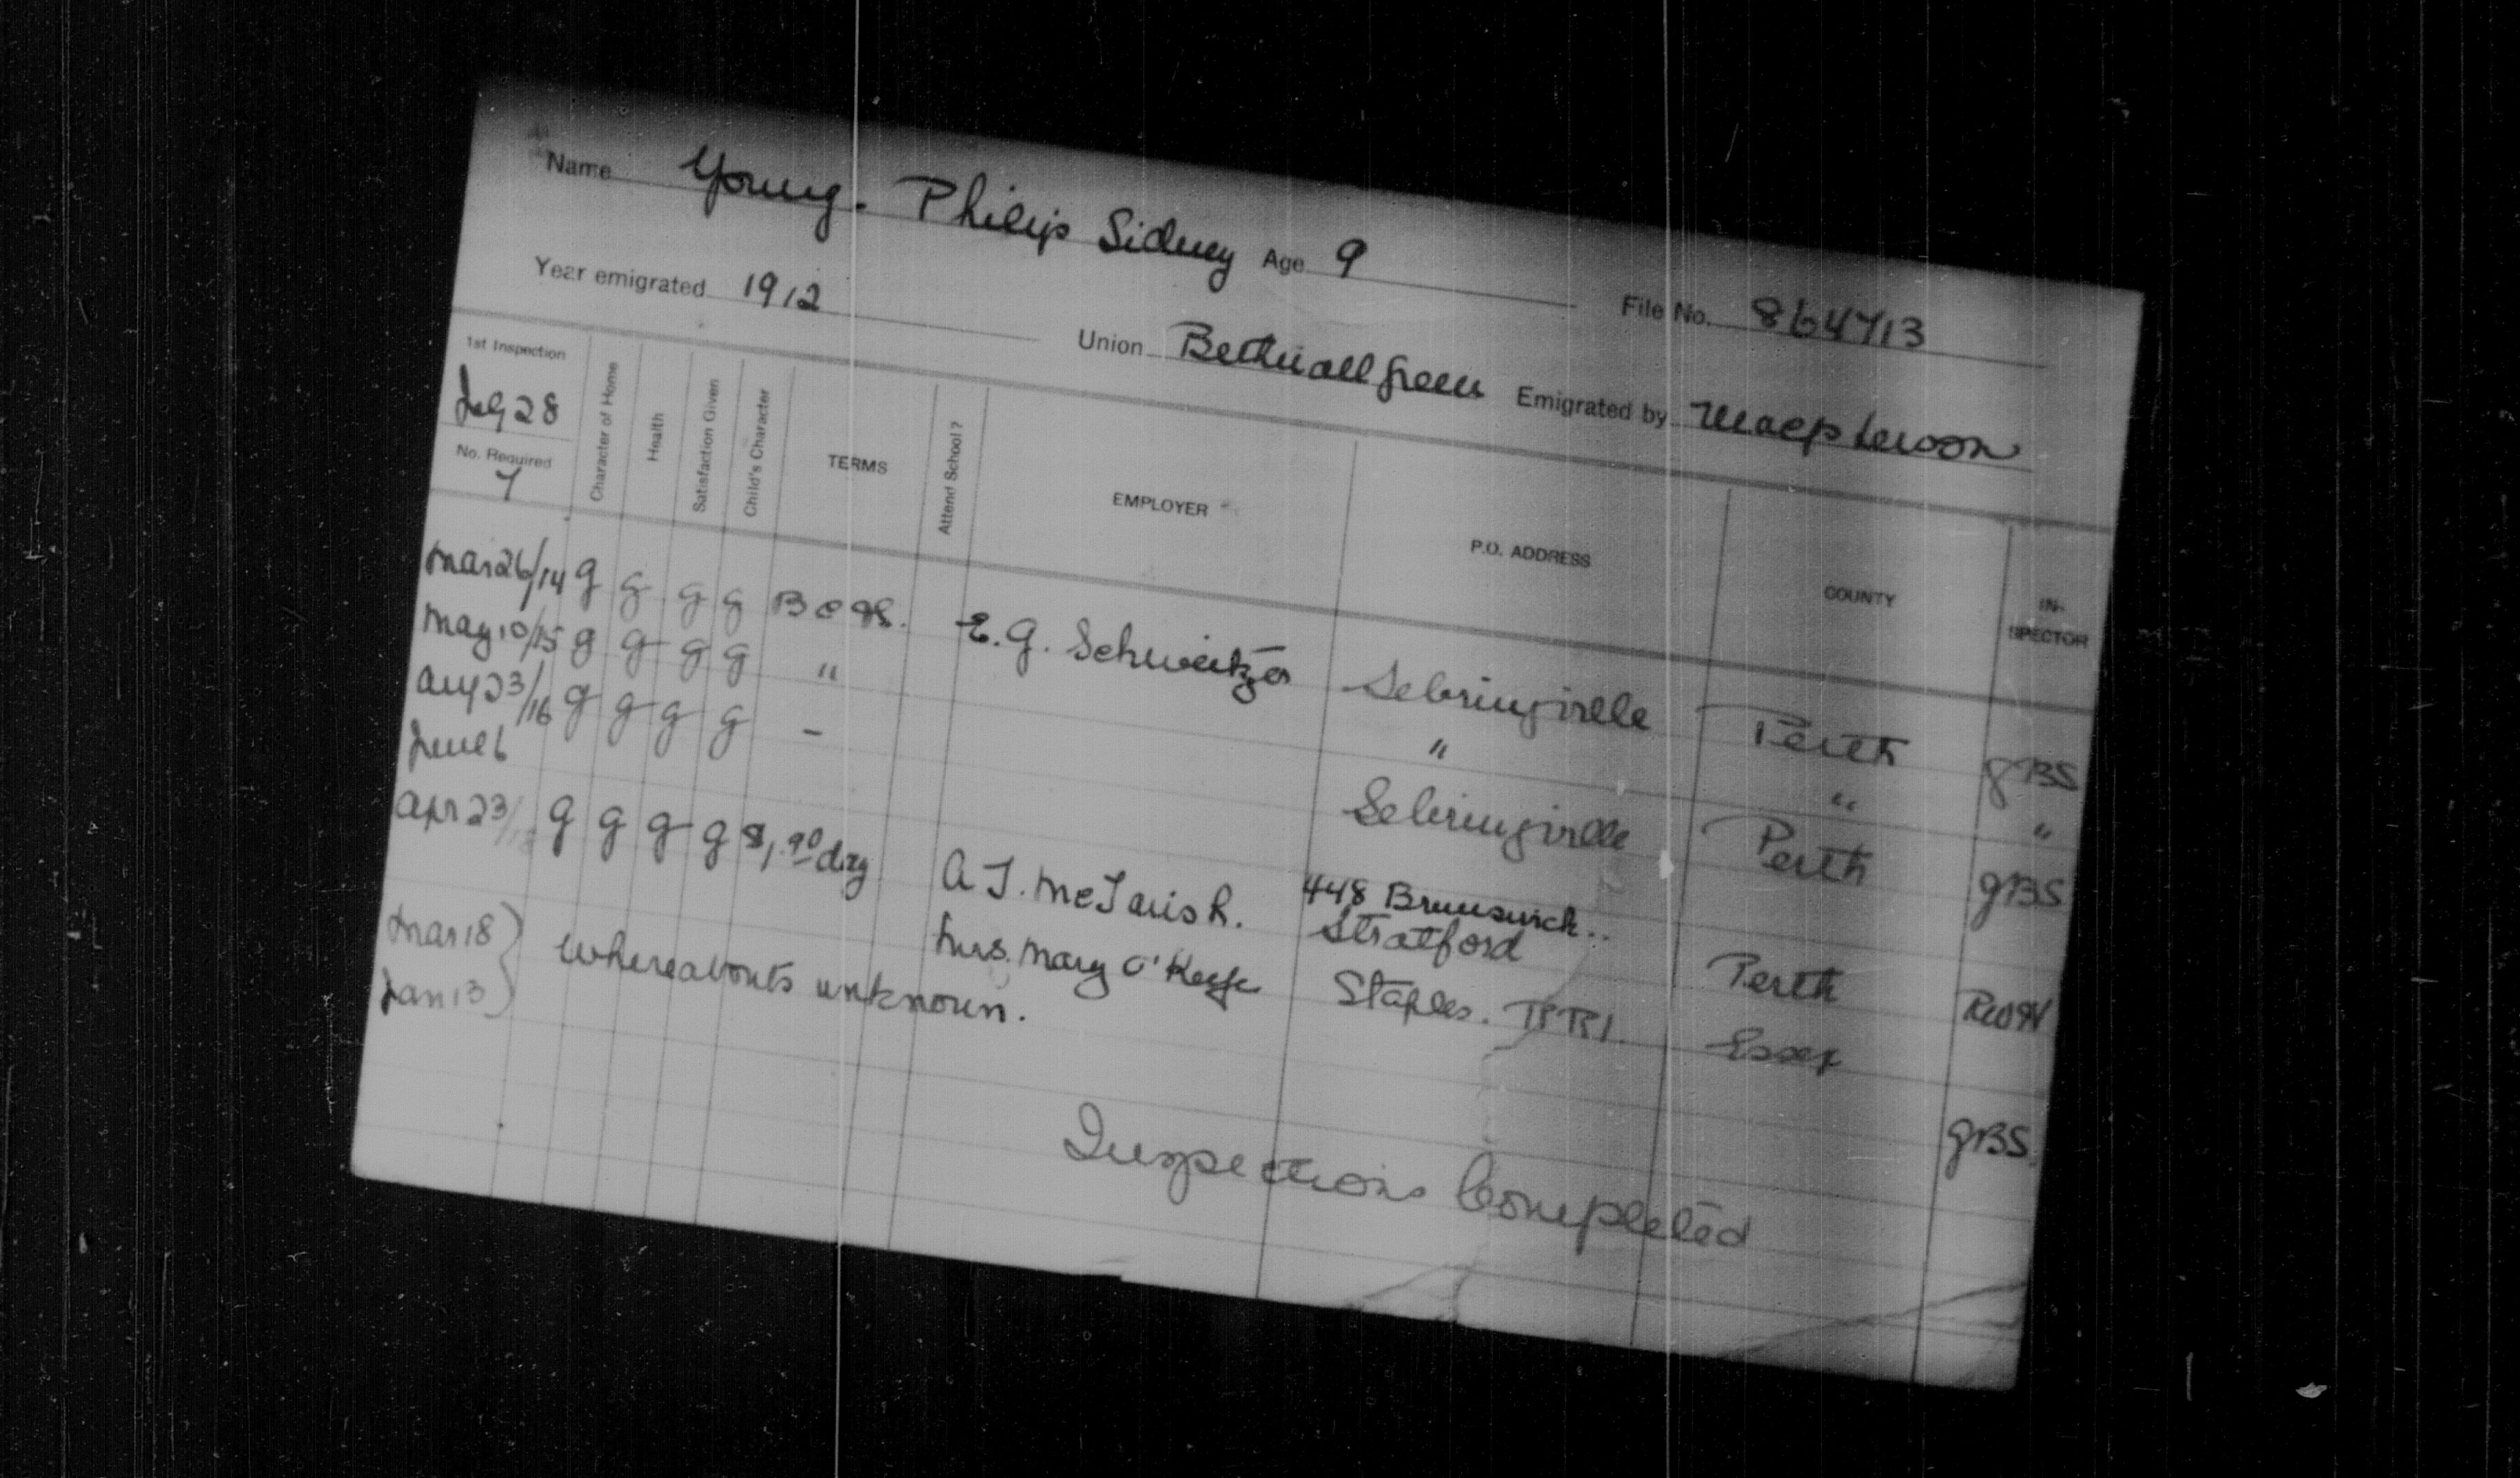 Name Young. Philip Sidney Age 9
Year emigrated 1912
File No. 864713
Union Bethnall Green Emigrated by Macpherson
1st Inspection
28
No. Required
7
Character of Home
Health
Satisfaction Given
Child's Character
TERMS
Attend School?
EMPLOYER
P.O. ADDRESS
COUNTY
IN-SPECTOR
Mar 26/14 g g g g E. G. Schweitzer Sebringville Perth GBS
May 10/15 g g g g " " " "
Aug 23/16 g g g g - Sebringville Perth GBS
June 6
Apr 23 g g g g $1.90 day A J. McTavish. 448 Brunswick.. Stratford Perth
Mrs. Mary O'Keefe Staples. RR1. Essex
Mar 18
Jan 13
Whereabouts unknown. GBS.
Inspections Completed